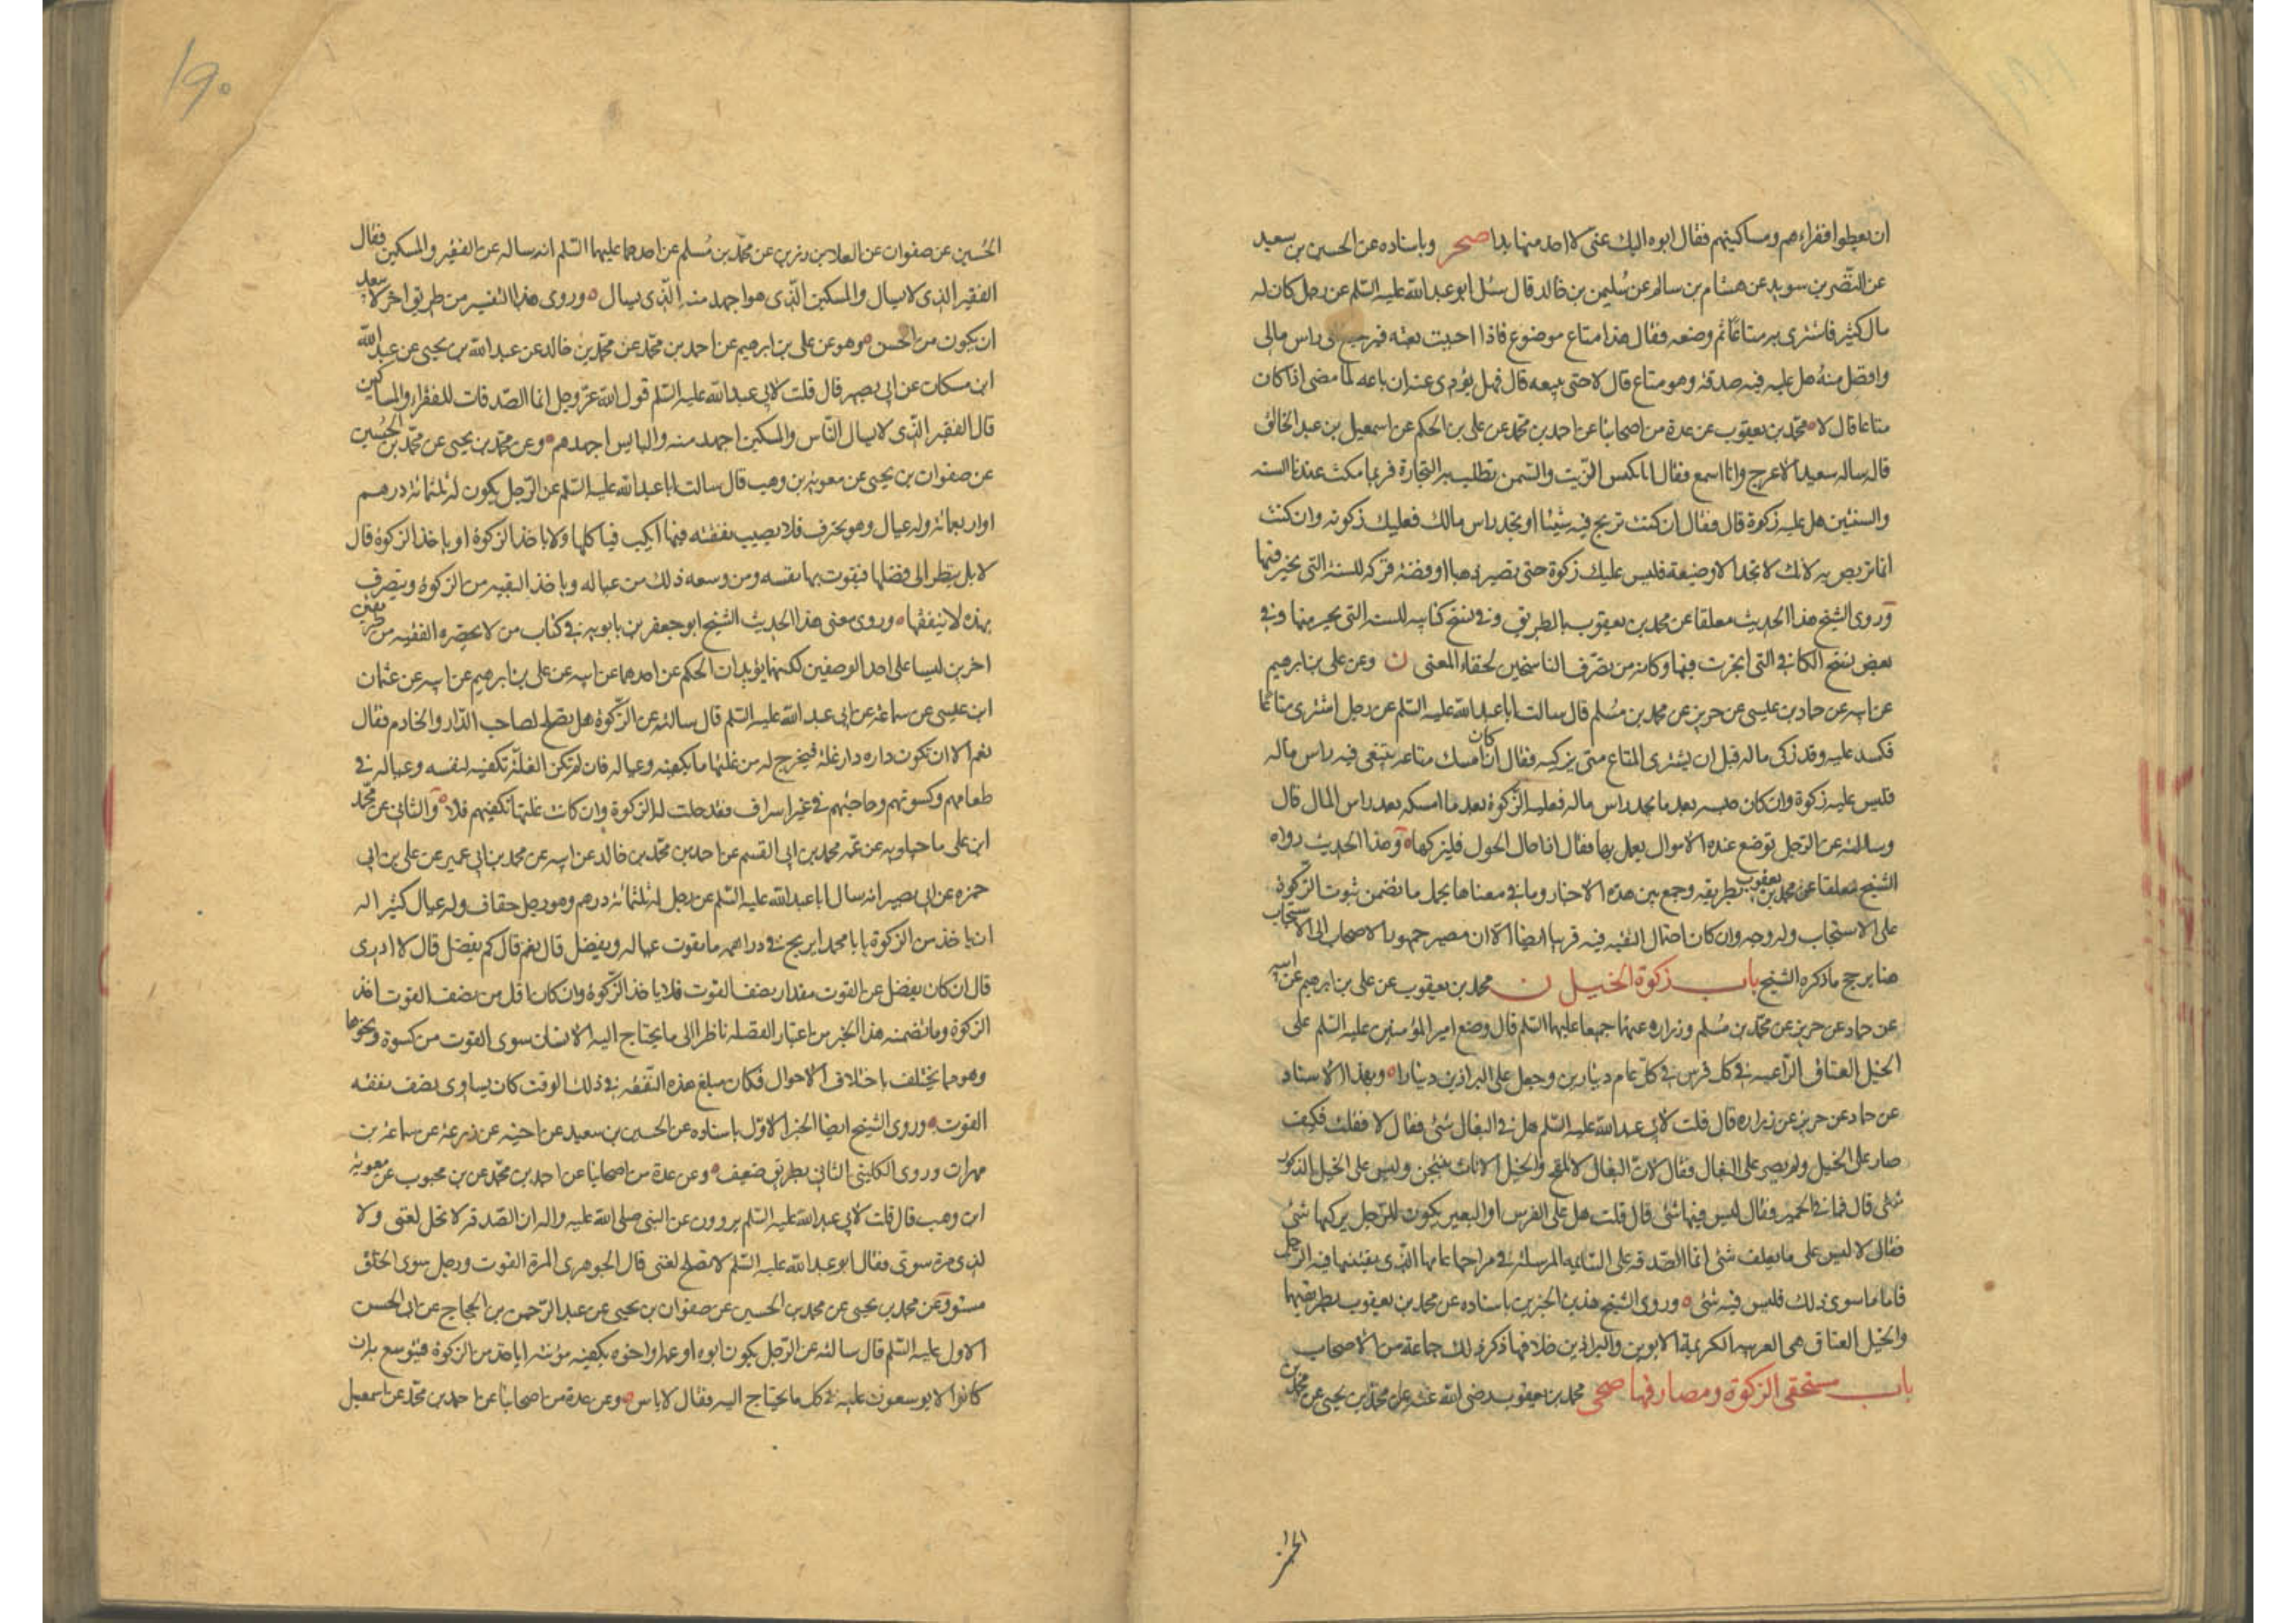 ان يعطوا فقراءهم ومساكينهم فقال ابوه اليك عنى لا اجد منها بدا صحر وباسناده عن الحسين بن سعيد
عن النضر بن سويد عن هشام بن سالم عن سليمن بن خالد قال سئل ابو عبد الله عليه السّلم عن رجل كان له
مال كثير فاشترى به متاعًا ثم وضعه فقال هذا متاع موضوع فاذا احببت بعته فيرجع الى راس مالى
وافضل منه هل عليه فيه صدقة وهو متاع قال لا حتى يبيعه قال فهل يؤدى عنه ان باعه لما مضى اذا كان
متاعا قال لا محمد بن يعقوب عن عدة من اصحابنا عن احمد بن محمد عن على بن الحكم عن اسمعيل بن عبد الخالق
قال ساله سعيد الاعرج وانا اسمع فقال انا نكبس الزيت والسمن نطلب به التجارة فربما مكث عندنا السنة
والسنتين هل عليه زكوة قال فقال ان كنت تربح فيه شيئا او تجد راس مالك فعليك زكوته وان كنت
انما تربص به لانك لا تجد الا وضيعة فليس عليك زكوة حتى يصير ذهبا او فضة فزكه للسنة التى تخير فيها
وروى الشيخ هذا الحديث معلقا عن محمد بن يعقوب بالطريق وفى نسخ كتابيه للسنة التى يخير منها وفى
بعض نسخ الكافى التى اتجرت فيها وكانه من تصرف الناسخين لخفاء المعنى ن وعن على بن ابرهيم
عن ابيه عن حماد بن عيسى عن حريز عن محمد بن مسلم قال سالت ابا عبد الله عليه السّلم عن رجل اشترى متاعًا
فكسد عليه وقد زكى ماله قبل ان يشترى المتاع متى يزكيه فقال ان كان امسك متاعه يبتغى فيه راس ماله
فليس عليه زكوة وان كان حبسه بعد ما يجد راس ماله فعليه الزكوة بعد ما امسكه بعد راس المال قال
وسالته عن الرجل توضع عنده الاموال يعمل بها فقال اذا حال الحول فليزكها وهذا الحديث رواه
الشيخ معلقا عن محمد بن يعقوب بطريقه وجمع بين هذه الاخبار وما فى معناها بحمل ما تضمن ثبوت الزكوة
على الاستحباب وله وجه وان كان احتمال التقية فيه قريبا ايضا الا ان مصير جمهور الاصحاب الى الاستحباب
هنا يرجح ما ذكره الشيخ باب زكوة الخيل ن محمد بن يعقوب عن على بن ابرهيم عن ابيه
عن حماد عن حريز عن محمد بن مسلم وزراره عنهما جميعا عليهما السّلم قال وضع امير المؤمنين عليه السّلم على
الخيل العتاق الراعية فى كل فرس فى كل عام دينارين وجعل على البراذين دينارا وبهذا الاسناد
عن حماد عن حريز عن زراره قال قلت لابى عبد الله عليه السّلم هل فى البغال شئ فقال لا فقلت فكيف
صار على الخيل ولم يصر على البغال فقال لان البغال لا تلقح والخيل الاناث ينتجن وليس على الخيل الذكور
شئ قال فما فى الحمير فقال ليس فيها شئ قال قلت هل على الفرس او البعير يكون للرجل يركبها شئ
فقال لا ليس على ما يعلف شئ انما الصدقة على السائمة المرسلة فى مراحها عامها الذى يقتنيها فيه الرجل
فاما ما سوى ذلك فليس فيه شئ وروى الشيخ هذين الخبرين باسناده عن محمد بن يعقوب بطريقيهما
والخيل العتاق هى العربية الكريمة الابوين والبراذين خلافها ذكر ذلك جماعة من الاصحاب
باب مستحقى الزكوة ومصارفها صحى محمد بن يعقوب رضى الله عنه عن محمد بن يحيى عن محمد بن
الحسين عن صفوان عن العلا بن رزين عن محمد بن مسلم عن احدهما عليهما السّلم انه ساله عن الفقير والمسكين فقال
الفقير الذى لا يسال والمسكين الذى هو اجهد منه الذى يسال وروى هذا التفسير من طريق اخر لا يبعد
ان يكون من الحسن وهو عن على بن ابرهيم عن احمد بن محمد عن محمد بن خالد عن عبد الله بن يحيى عن عبد الله
ابن مسكان عن ابى بصير قال قلت لابى عبد الله عليه السّلم قول الله عزّ وجل انما الصدقات للفقراء والمساكين
قال الفقير الذى لا يسال الناس والمسكين اجهد منه والبايس اجهدهم وعن محمد بن يحيى عن محمد بن الحسين
عن صفوان بن يحيى عن معوية بن وهب قال سالت ابا عبد الله عليه السّلم عن الرجل يكون له ثلثمائة درهم
او اربعمائة وله عيال وهو يحترف فلا يصيب نفقته فيها ايكب فياكلها ولا ياخذ الزكوة او ياخذ الزكوة قال
لا بل ينظر الى فضلها فيقوت بها نفسه ومن وسعه ذلك من عياله وياخذ البقية من الزكوة ويتصرف
بهذه لا ينفقها وروى معنى هذا الحديث الشيخ ابو جعفر بن بابويه فى كتاب من لا يحضره الفقيه من طريقين
اخرين ليسا على احد الوصفين لكنهما يؤيدان الحكم عن احدهما عن ابيه عن على بن ابرهيم عن ابيه عن عثمان
ابن عيسى عن سماعة عن ابى عبد الله عليه السّلم قال سالته عن الزكوة هل تصلح لصاحب الدار والخادم فقال
نعم الا ان تكون داره دار غلة فيخرج له من غلتها ما يكفيه وعياله فان لم تكن الغلة تكفيه لنفسه وعياله فى
طعامهم وكسوتهم وحاجتهم فى غير اسراف فقد حلت له الزكوة وان كانت غلتها تكفيهم فلا والثانى عن محمد
ابن على ماجيلويه عن عمه محمد بن ابى القسم عن احمد بن محمد بن خالد عن ابيه عن محمد بن ابى عمير عن على بن ابى
حمزه عن ابى بصير انه سال ابا عبد الله عليه السّلم عن رجل له ثلثمائة درهم وهو رجل خفاف وله عيال كثير اله
ان ياخذ من الزكوة يا با محمد ايربح فى دراهمه ما يقوت عياله ويفضل قال نعم قال كم يفضل قال لا ادرى
قال ان كان يفضل عن القوت مقدار نصف القوت فلا ياخذ الزكوة وان كان اقل من نصف القوت اخذ
الزكوة وما تضمنه هذا الخبر من اعتبار الفضله ناظر الى ما يحتاج اليه الانسان سوى القوت من كسوة ونحوها
وهو مما يختلف باختلاف الاحوال فكان مبلغ هذه النفقه فى ذلك الوقت كان يساوى نصف نفقه
القوت وروى الشيخ ايضا الخبر الاوّل باسناده عن الحسين بن سعيد عن اخيه عن زرعة عن سماعة بن
مهران وروى الكلينى الثانى بطريق ضعيف وعن عدة من اصحابنا عن احمد بن محمد عن بن محبوب عن معوية
ابن وهب قال قلت لابى عبد الله عليه السّلم يروون عن النبى صلى الله عليه واله ان الصدقه لا تحل لغنى ولا
لذى مرة سوىّ فقال ابو عبد الله عليه السّلم لا تصلح لغنى قال الجوهرى المرة القوت ورجل سوى الخلق
مستو وعن محمد بن يحيى عن محمد بن الحسين عن صفوان بن يحيى عن عبد الرحمن بن الحجاج عن ابى الحسن
الاول عليه السّلم قال سالته عن الرجل يكون ابوه او عمه او اخوه يكفيه مؤنته اياخذ من الزكوة فيتوسع به ان
كانوا لا يوسعون عليه فى كل ما يحتاج اليه فقال لا باس وعن عدة من اصحابنا عن احمد بن محمد عن اسمعيل
١٩٠